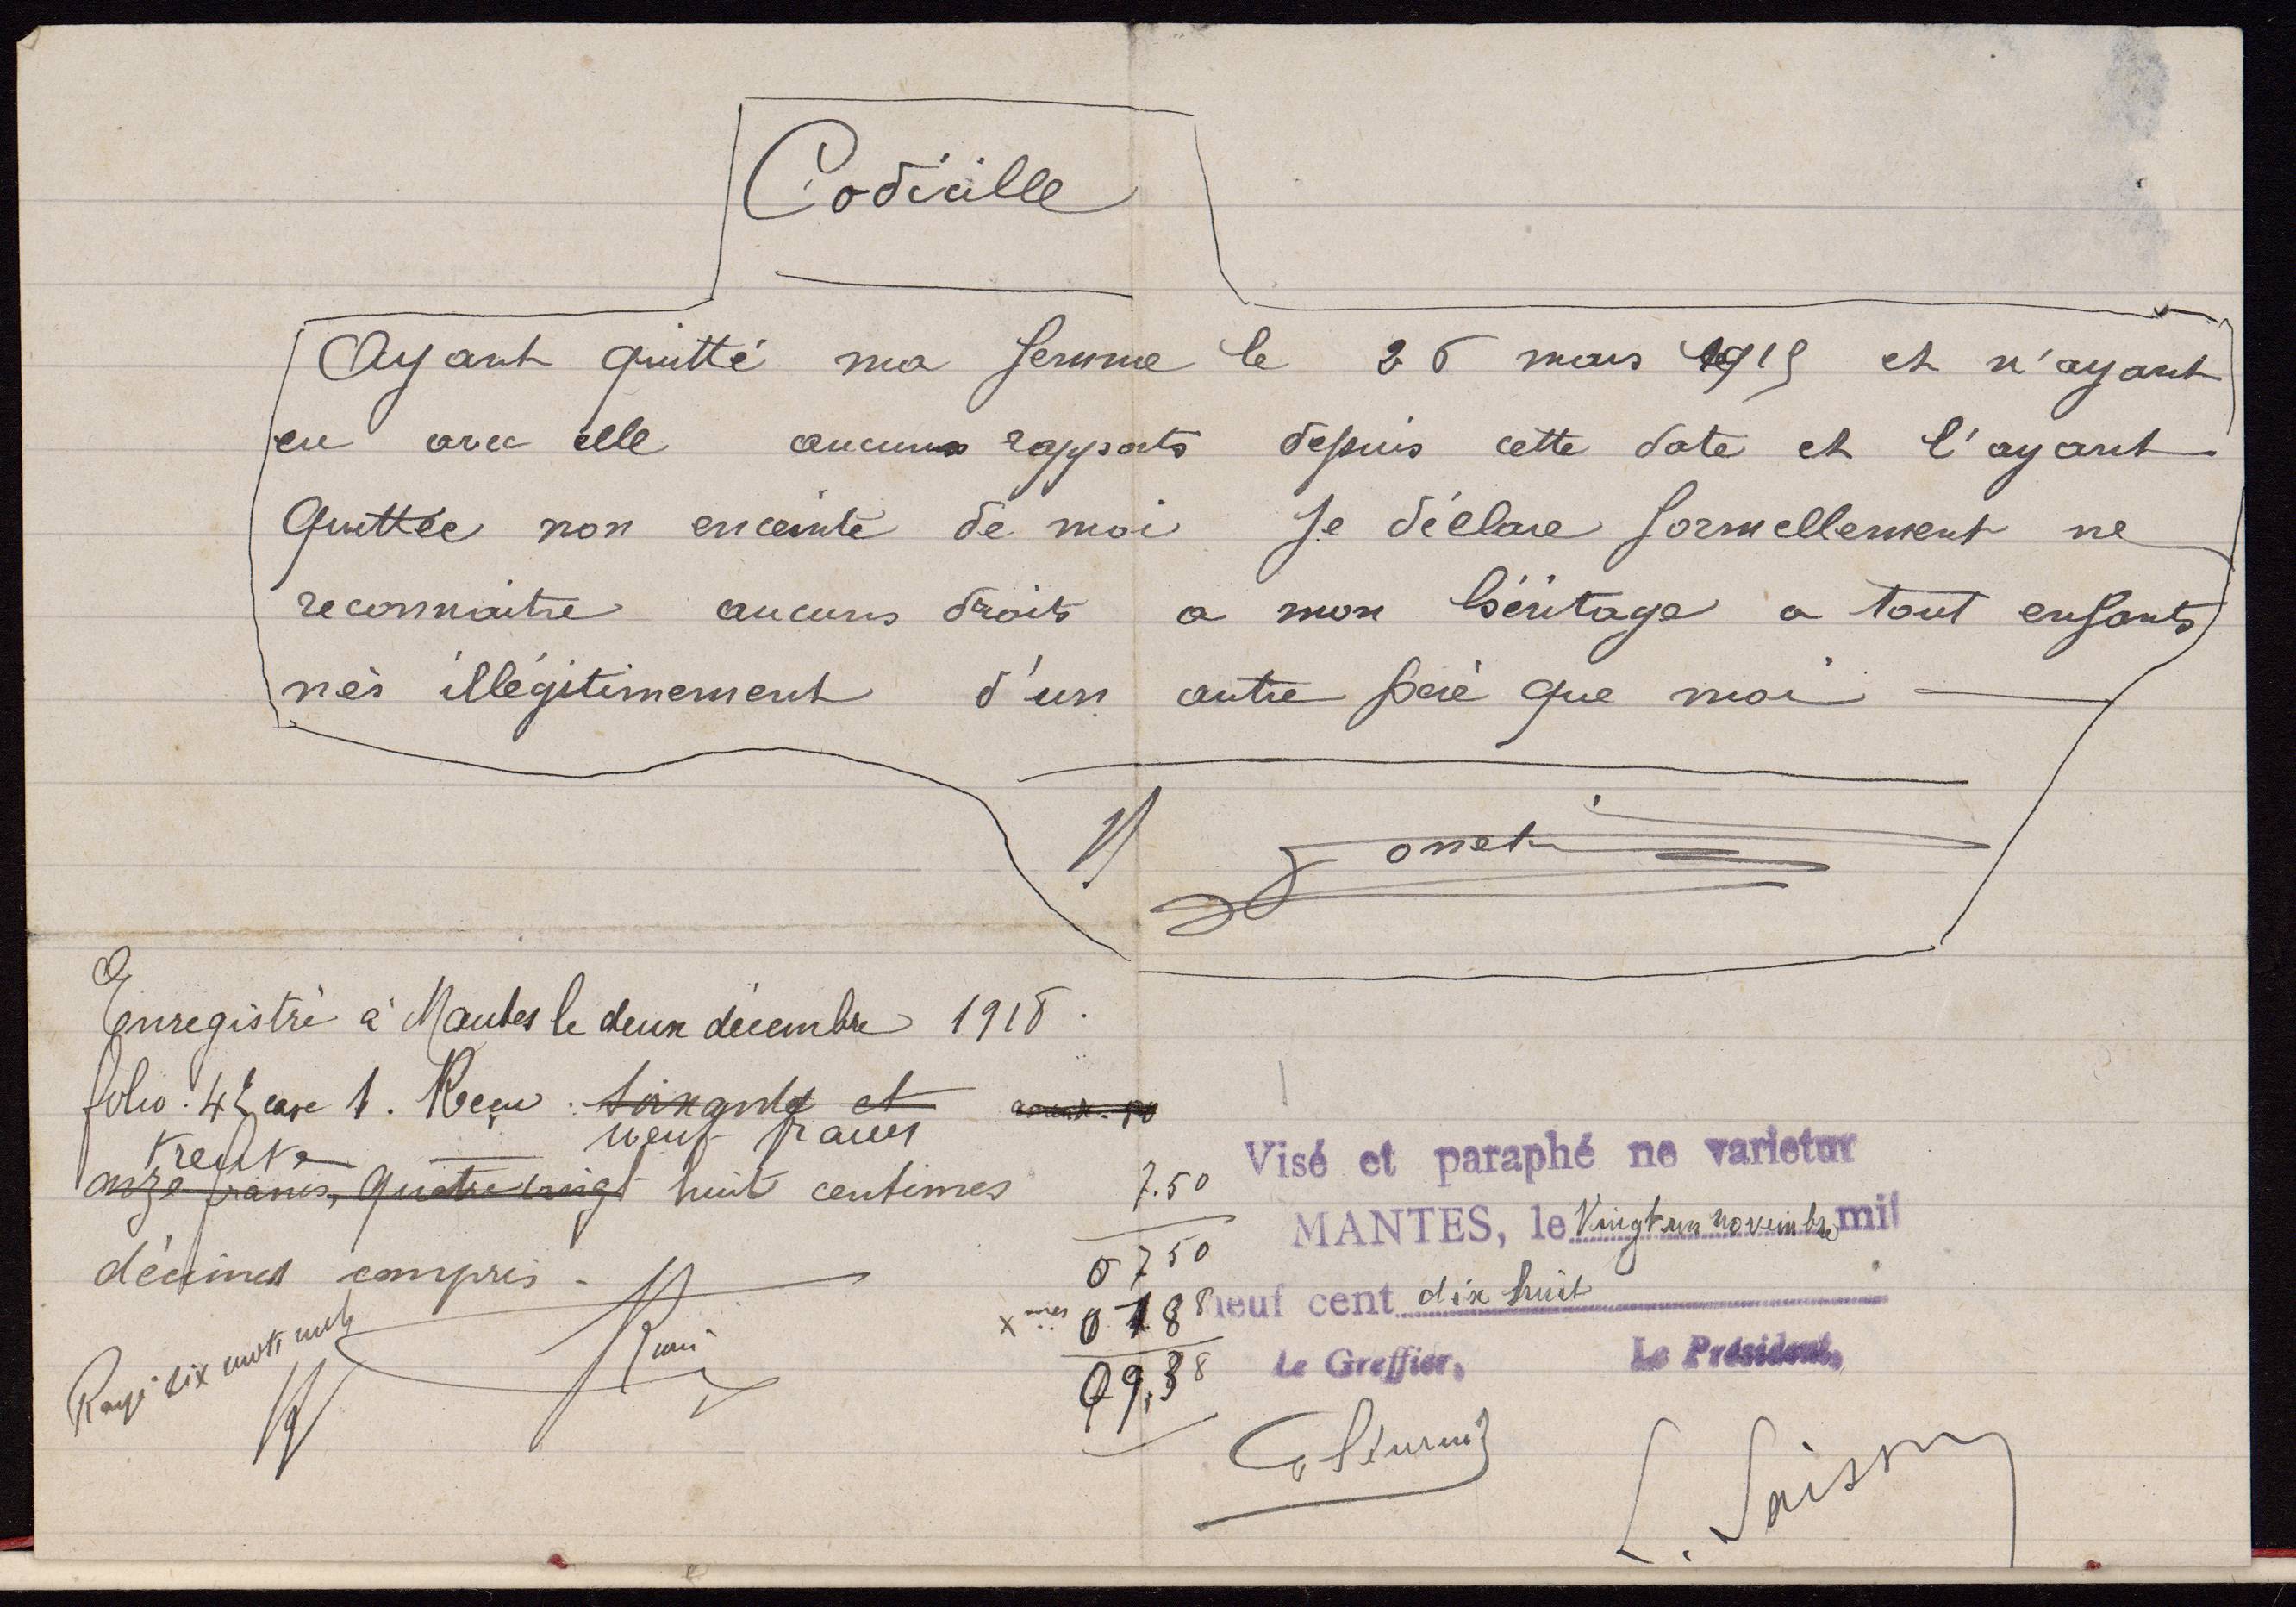 Codicille
Ayant quitté ma femme le 26 mars 1915 et n'ayant
eu avec elle aucuns rapports depuis cette date et l'ayant
quittée non enceinte de moi je déclare formellement ne
reconnaitre aucuns droits a mon héritage a tout enfants
nés illégitimement d'un autre père que moi
Enregistré à Mantes le deux décembre 1918.
folio: 42 case 1. Reçu: soixante et
neuf francs
trente
onze francs, quatre vingt huit centimes
décimes compris.
Rayé six mots nuls
7.50
0 7 50
x mes 0 1 8 8
9.38
Visé et paraphé ne varietur
MANTES, le Vingt un novembre mil
neuf cent dix huit
Le Greffier, Le Président,